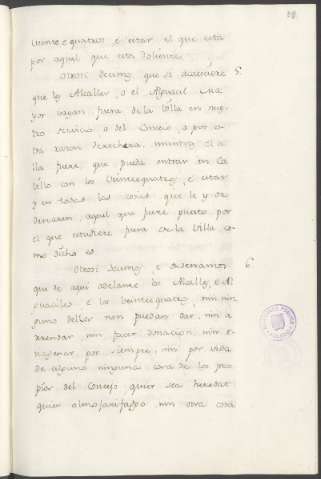 veinte e quatros e estar el que esta
por aquel que esta doliente.
Otrosi decimos que si acaesciere 5.
que los Alcalles, o el Alguacil Ma-
yor vayan fuera de la Villa en nues-
tro servicio o del Concejo, o por o-
tra razon derechera, mientra el a-
lla fuere, que pueda entrar en Ca-
bildo con los veintequatros, e estar
y en todas las cosas que le y or-
denaren, aquel que fuere puesto por
el que estubiere fuera en la Villa co-
mo dicho es.
Otrosi decimos e ordenamos 6.
que de aqui adelante los Alcalles, e Al-
guaciles e los veintequatros, nin nin-
guno dellos non puedan dar, nin a-
rrendar nin facer donacion, nin e-
nagenar por siempre, nin por vida
de alguno ninguna cosa de los pro-
pios del Concejo quier sea heredat
quier almojarifazgo, nin otra cosa